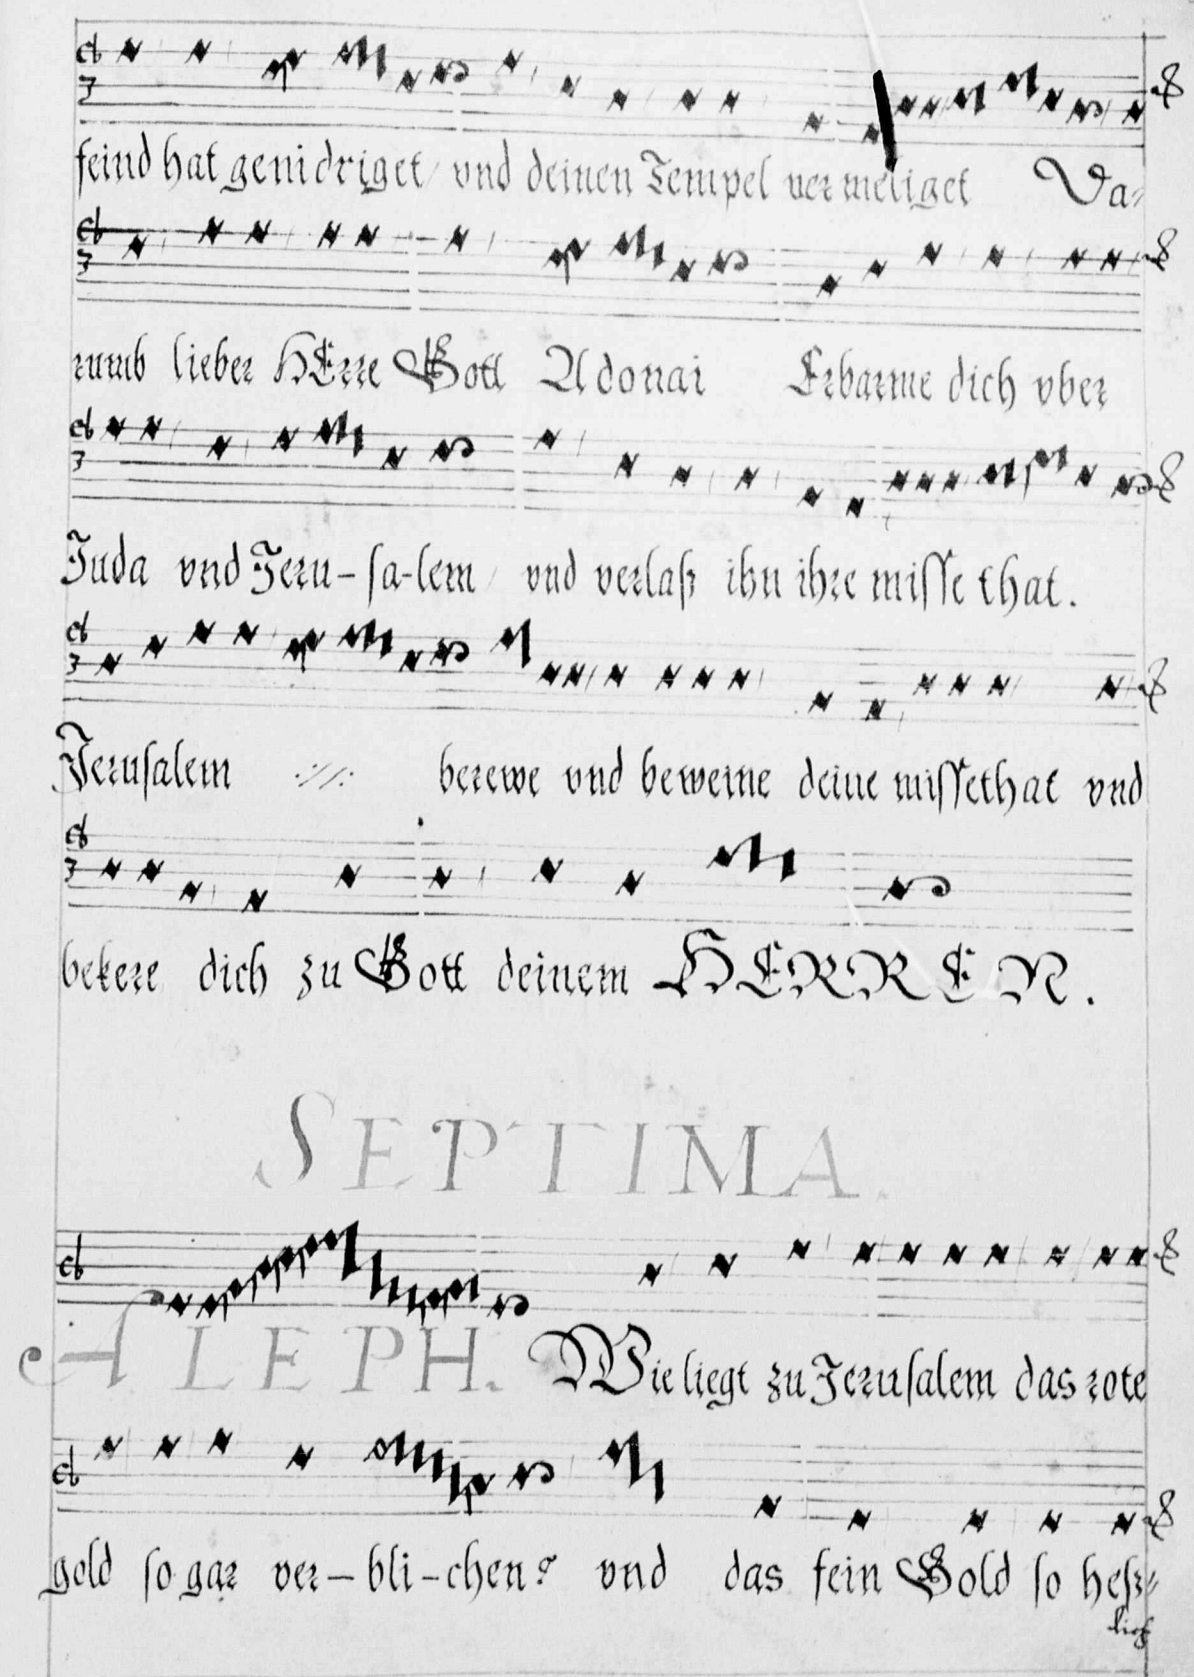 feind hat genidriget / vnd deinen Tempel vermeliget Da-
rumb lieber HErre Gott Adonai Erbarme dich vber
Juda vnd Jeru-sa-lem / vnd verlaß ihn ihre missethat.
Jerusalem ·//· berewe vnd beweine deine missethat vnd
bekere dich zu Gott deinem HERREN.
SEPTIMA.
ALEPH. Wie liegt zu Jerusalem das rote
gold so gar ver-bli-chen? vnd das fein Gold so heß-
lich